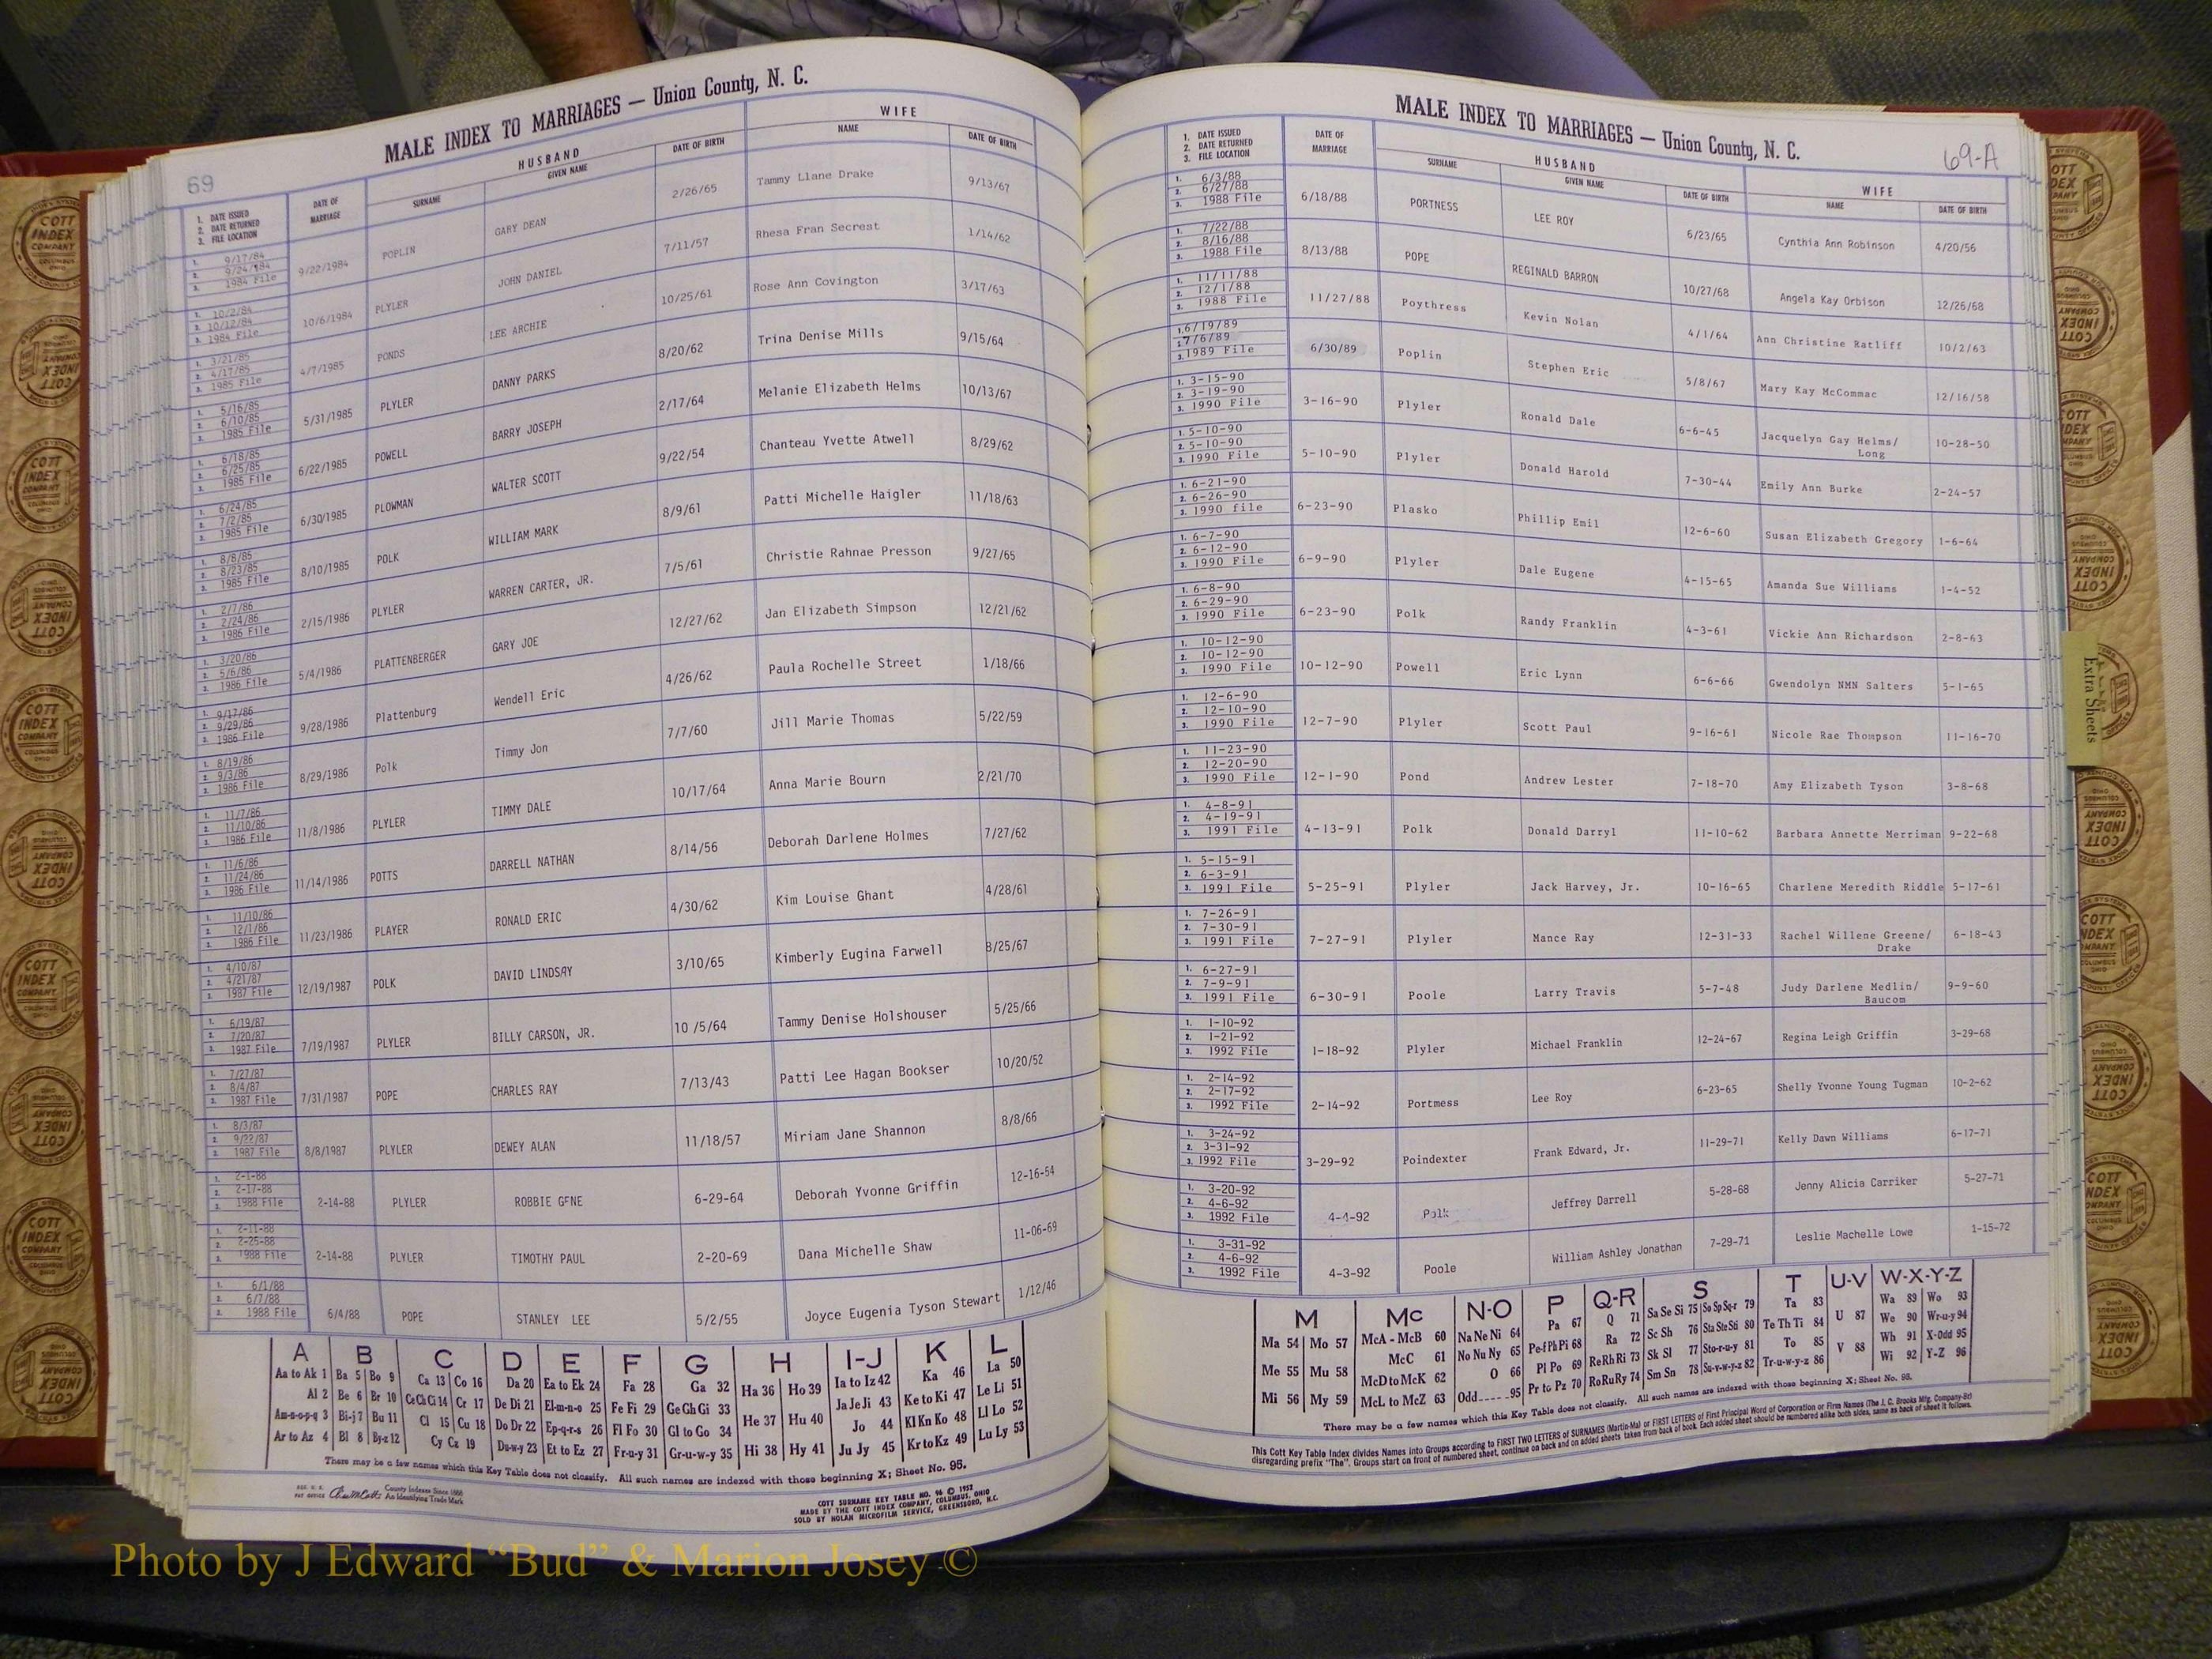 MALE INDEX TO MARRIAGES — Union County, N. C.
69
1. DATE ISSUED
2. DATE RETURNED
3. FILE LOCATION
DATE OF MARRIAGE
HUSBAND
SURNAME GIVEN NAME DATE OF BIRTH
WIFE
NAME DATE OF BIRTH
1. 9/17/84
2. 9/24/84
3. 1984 File
9/22/1984 POPLIN GARY DEAN 2/26/65 Tammy Llane Drake 9/13/67
1. 10/2/84
2. 10/12/84
3. 1984 File
10/6/1984 PLYLER JOHN DANIEL 7/11/57 Rhesa Fran Secrest 1/14/62
1. 3/21/85
2. 4/17/85
3. 1985 File
4/7/1985 PONDS LEE ARCHIE 10/25/61 Rose Ann Covington 3/17/63
1. 5/16/85
2. 6/10/85
3. 1985 File
5/31/1985 PLYLER DANNY PARKS 8/20/62 Trina Denise Mills 9/15/64
1. 6/18/85
2. 6/25/85
3. 1985 File
6/22/1985 POWELL BARRY JOSEPH 2/17/64 Melanie Elizabeth Helms 10/13/67
1. 6/24/85
2. 7/2/85
3. 1985 File
6/30/1985 PLOWMAN WALTER SCOTT 9/22/54 Chanteau Yvette Atwell 8/29/62
1. 8/8/85
2. 8/23/85
3. 1985 File
8/10/1985 POLK WILLIAM MARK 8/9/61 Patti Michelle Haigler 11/18/63
1. 2/7/86
2. 2/24/86
3. 1986 File
2/15/1986 PLYLER WARREN CARTER, JR. 7/5/61 Christie Rahnae Presson 9/27/65
1. 3/20/86
2. 5/6/86
3. 1986 File
5/4/1986 PLATTENBERGER GARY JOE 12/27/62 Jan Elizabeth Simpson 12/21/62
1. 9/17/86
2. 9/29/86
3. 1986 File
9/28/1986 Plattenburg Wendell Eric 4/26/62 Paula Rochelle Street 1/18/66
1. 8/19/86
2. 9/3/86
3. 1986 File
8/29/1986 Polk Timmy Jon 7/7/60 Jill Marie Thomas 5/22/59
1. 11/7/86
2. 11/10/86
3. 1986 File
11/8/1986 PLYLER TIMMY DALE 10/17/64 Anna Marie Bourn 2/21/70
1. 11/6/86
2. 11/24/86
3. 1986 File
11/14/1986 POTTS DARRELL NATHAN 8/14/56 Deborah Darlene Holmes 7/27/62
1. 11/10/86
2. 12/1/86
3. 1986 File
11/23/1986 PLAYER RONALD ERIC 4/30/62 Kim Louise Ghant 4/28/61
1. 4/10/87
2. 4/21/87
3. 1987 File
12/19/1987 POLK DAVID LINDSAY 3/10/65 Kimberly Eugina Farwell 8/25/67
1. 6/19/87
2. 7/20/87
3. 1987 File
7/19/1987 PLYLER BILLY CARSON, JR. 10 /5/64 Tammy Denise Holshouser 5/25/66
1. 7/27/87
2. 8/4/87
3. 1987 File
7/31/1987 POPE CHARLES RAY 7/13/43 Patti Lee Hagan Bookser 10/20/52
1. 8/3/87
2. 9/22/87
3. 1987 File
8/8/1987 PLYLER DEWEY ALAN 11/18/57 Miriam Jane Shannon 8/8/66
1. 2-1-88
2. 2-17-88
3. 1988 File
2-14-88 PLYLER ROBBIE GENE 6-29-64 Deborah Yvonne Griffin 12-16-54
1. 2-11-88
2. 2-25-88
3. 1988 File
2-14-88 PLYLER TIMOTHY PAUL 2-20-69 Dana Michelle Shaw 11-06-69
1. 6/1/88
2. 6/7/88
3. 1988 File
6/4/88 POPE STANLEY LEE 5/2/55 Joyce Eugenia Tyson Stewart 1/12/46
A B C D E F G H I-J K L
Aa to Ak 1 Ba 5 Bo 9 Ca 13 Co 16 Da 20 Ea to Ek 24 Fa 28 Ga 32 Ha 36 Ho 39 Ia to Iz 42 Ka 46 La 50
Al 2 Be 6 Br 10 Ce Ch Ci 14 Cr 17 De Di 21 El-m-n-o 25 Fe Fi 29 Ge Gh Gi 33 He 37 Hu 40 Ja Je Ji 43 Ke to Ki 47 Le Li 51
Am-n-o-p-q 3 Bi-j 7 Bu 11 Cl 15 Cu 18 Do Dr 22 Ep-q-r-s 26 Fl Fo 30 Gl to Go 34 Hi 38 Hy 41 Jo 44 Kl Kn Ko 48 Ll Lo 52
Ar to Az 4 Bl 8 By-z 12 Cy Cz 19 Du-w-y 23 Et to Ez 27 Fr-u-y 31 Gr-u-w-y 35 Ju Jy 45 Kr to Kz 49 Lu Ly 53
There may be a few names which this Key Table does not classify. All such names are indexed with those beginning X; Sheet No. 95.
County Indexes Since 1888
An Identifying Trade Mark
COTT SURNAME KEY TABLE NO. 96 © 1952
MADE BY THE COTT INDEX COMPANY, COLUMBUS, OHIO
SOLD BY NOLAN MICROFILM SERVICE, GREENSBORO, N.C.
MALE INDEX TO MARRIAGES — Union County, N. C.
69-A
1. DATE ISSUED
2. DATE RETURNED
3. FILE LOCATION
DATE OF MARRIAGE
HUSBAND
SURNAME GIVEN NAME DATE OF BIRTH
WIFE
NAME DATE OF BIRTH
1. 6/3/88
2. 6/27/88
3. 1988 File
6/18/88 PORTNESS LEE ROY 6/23/65 Cynthia Ann Robinson 4/20/56
1. 7/22/88
2. 8/16/88
3. 1988 File
8/13/88 POPE REGINALD BARRON 10/27/68 Angela Kay Orbison 12/26/68
1. 11/11/88
2. 12/1/88
3. 1988 File
11/27/88 Poythress Kevin Nolan 4/1/64 Ann Christine Ratliff 10/2/63
1. 6/19/89
2. 7/6/89
3. 1989 File
6/30/89 Poplin Stephen Eric 5/8/67 Mary Kay McCommac 12/16/58
1. 3-15-90
2. 3-19-90
3. 1990 File
3-16-90 Plyler Ronald Dale 6-6-45 Jacquelyn Gay Helms/ Long 10-28-50
1. 5-10-90
2. 5-10-90
3. 1990 File
5-10-90 Plyler Donald Harold 7-30-44 Emily Ann Burke 2-24-57
1. 6-21-90
2. 6-26-90
3. 1990 file
6-23-90 Plasko Phillip Emil 12-6-60 Susan Elizabeth Gregory 1-6-64
1. 6-7-90
2. 6-12-90
3. 1990 File
6-9-90 Plyler Dale Eugene 4-15-65 Amanda Sue Williams 1-4-52
1. 6-8-90
2. 6-29-90
3. 1990 File
6-23-90 Polk Randy Franklin 4-3-61 Vickie Ann Richardson 2-8-63
1. 10-12-90
2. 10-12-90
3. 1990 File
10-12-90 Powell Eric Lynn 6-6-66 Gwendolyn NMN Salters 5-1-65
1. 12-6-90
2. 12-10-90
3. 1990 File
12-7-90 Plyler Scott Paul 9-16-61 Nicole Rae Thompson 11-16-70
1. 11-23-90
2. 12-20-90
3. 1990 File
12-1-90 Pond Andrew Lester 7-18-70 Amy Elizabeth Tyson 3-8-68
1. 4-8-91
2. 4-19-91
3. 1991 File
4-13-91 Polk Donald Darryl 11-10-62 Barbara Annette Merriman 9-22-68
1. 5-15-91
2. 6-3-91
3. 1991 File
5-25-91 Plyler Jack Harvey, Jr. 10-16-65 Charlene Meredith Riddle 5-17-61
1. 7-26-91
2. 7-30-91
3. 1991 File
7-27-91 Plyler Mance Ray 12-31-33 Rachel Willene Greene/ Drake 6-18-43
1. 6-27-91
2. 7-9-91
3. 1991 File
6-30-91 Poole Larry Travis 5-7-48 Judy Darlene Medlin/ Baucom 9-9-60
1. 1-10-92
2. 1-21-92
3. 1992 File
1-18-92 Plyler Michael Franklin 12-24-67 Regina Leigh Griffin 3-29-68
1. 2-14-92
2. 2-17-92
3. 1992 File
2-14-92 Portmess Lee Roy 6-23-65 Shelly Yvonne Young Tugman 10-2-62
1. 3-24-92
2. 3-31-92
3. 1992 File
3-29-92 Poindexter Frank Edward, Jr. 11-29-71 Kelly Dawn Williams 6-17-71
1. 3-20-92
2. 4-6-92
3. 1992 File
4-4-92 Polk Jeffrey Darrell 5-28-68 Jenny Alicia Carriker 5-27-71
1. 3-31-92
2. 4-6-92
3. 1992 File
4-3-92 Poole William Ashley Jonathan 7-29-71 Leslie Machelle Lowe 1-15-72
M Mc N-O P Q-R S T U-V W-X-Y-Z
Ma 54 Mo 57 McA - McB 60 Na Ne Ni 64 Pa 67 Q 71 Sa Se Si 75 So Sp Sq-r 79 Ta 83 U 87 Wa 89 Wo 93
Me 55 Mu 58 McC 61 No Nu Ny 65 Pe-f Ph Pi 68 Ra 72 Sc Sh 76 Sta Ste Sti 80 Te Th Ti 84 V 88 We 90 Wr-u-y 94
Mi 56 My 59 McD to McK 62 O 66 Pl Po 69 Re Rh Ri 73 Sk Sl 77 Sto-r-u-y 81 To 85 Wh 91 X-Odd 95
McL to McZ 63 Odd 95 Pr to Pz 70 Ro Ru Ry 74 Sm Sn 78 Su-v-w-y-z 82 Tr-u-w-y-z 86 Wi 92 Y-Z 96
There may be a few names which this Key Table does not classify. All such names are indexed with those beginning X; Sheet No. 95.
This Cott Key Table Index divides Names into Groups according to FIRST TWO LETTERS of SURNAMES (Martin-Ma) or FIRST LETTERS of First Principal Word of Corporation or Firm Names (The J. C. Brooks Mfg. Company-Br)
disregarding prefix "The". Groups start on front of numbered sheet, continue on back and on added sheets taken from back of book. Each added sheet should be numbered alike both sides, same as back of sheet it follows.
Extra Sheets
COTT INDEX COMPANY COLUMBUS OHIO
Photo by J Edward “Bud” & Marion Josey ©